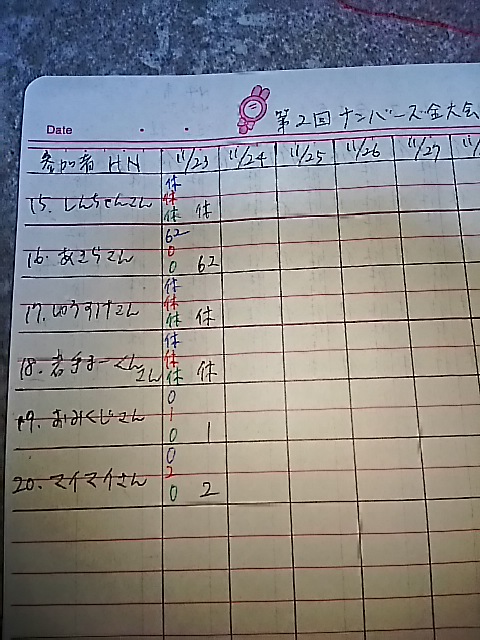 第2回ナンバーズ全大会
Date
参加者 HN 11/23 11/24 11/25 11/26 11/27
休
15. しんちゃんさん 休
休 休
62
16. あきらさん 0
0 62
休
17. ゆうすけさん 休
休 休
休
18. 若手まーくんさん 休
休 休
0
19. おみくじさん 1
0 1
0
20. マイマイさん 2
0 2